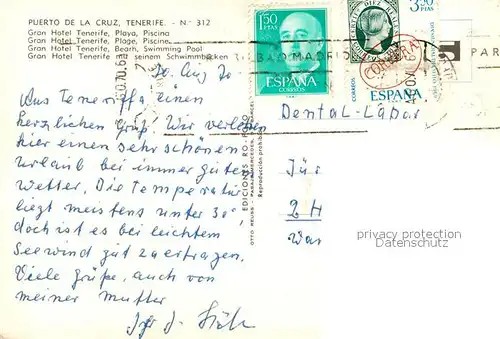 PUERTO DE LA CRUZ, TENERIFE. - N.º 312
Gran Hotel Tenerife, Playa, Piscina
Gran Hotel Tenerife, Plage, Piscine
Gran Hotel Tenerife, Bearh, Swimming Pool
Gran Hotel Tenerife mit seinem Schwimmbecken
1,50
PTAS
ESPAÑA
CORREOS
3,50
PTAS
CORREOS
ESPAÑA
MADRID
PAR
5
20. Aug 70.
Aus Teneriffa einen
herzlichen Gruß! Wir verleben
hier einen sehr schönen
Urlaub bei immer guten
Wetter. Die Temperatur
liegt meistens unter 30°,
doch ist es bei leichtem
Seewind gut zu ertragen.
Viele Grüße, auch von
meiner Mutter
Dental-Labor
Für
2H
privacy protection
Datenschutz
EDICIONES RO-FOTO
Reproducción prohibida